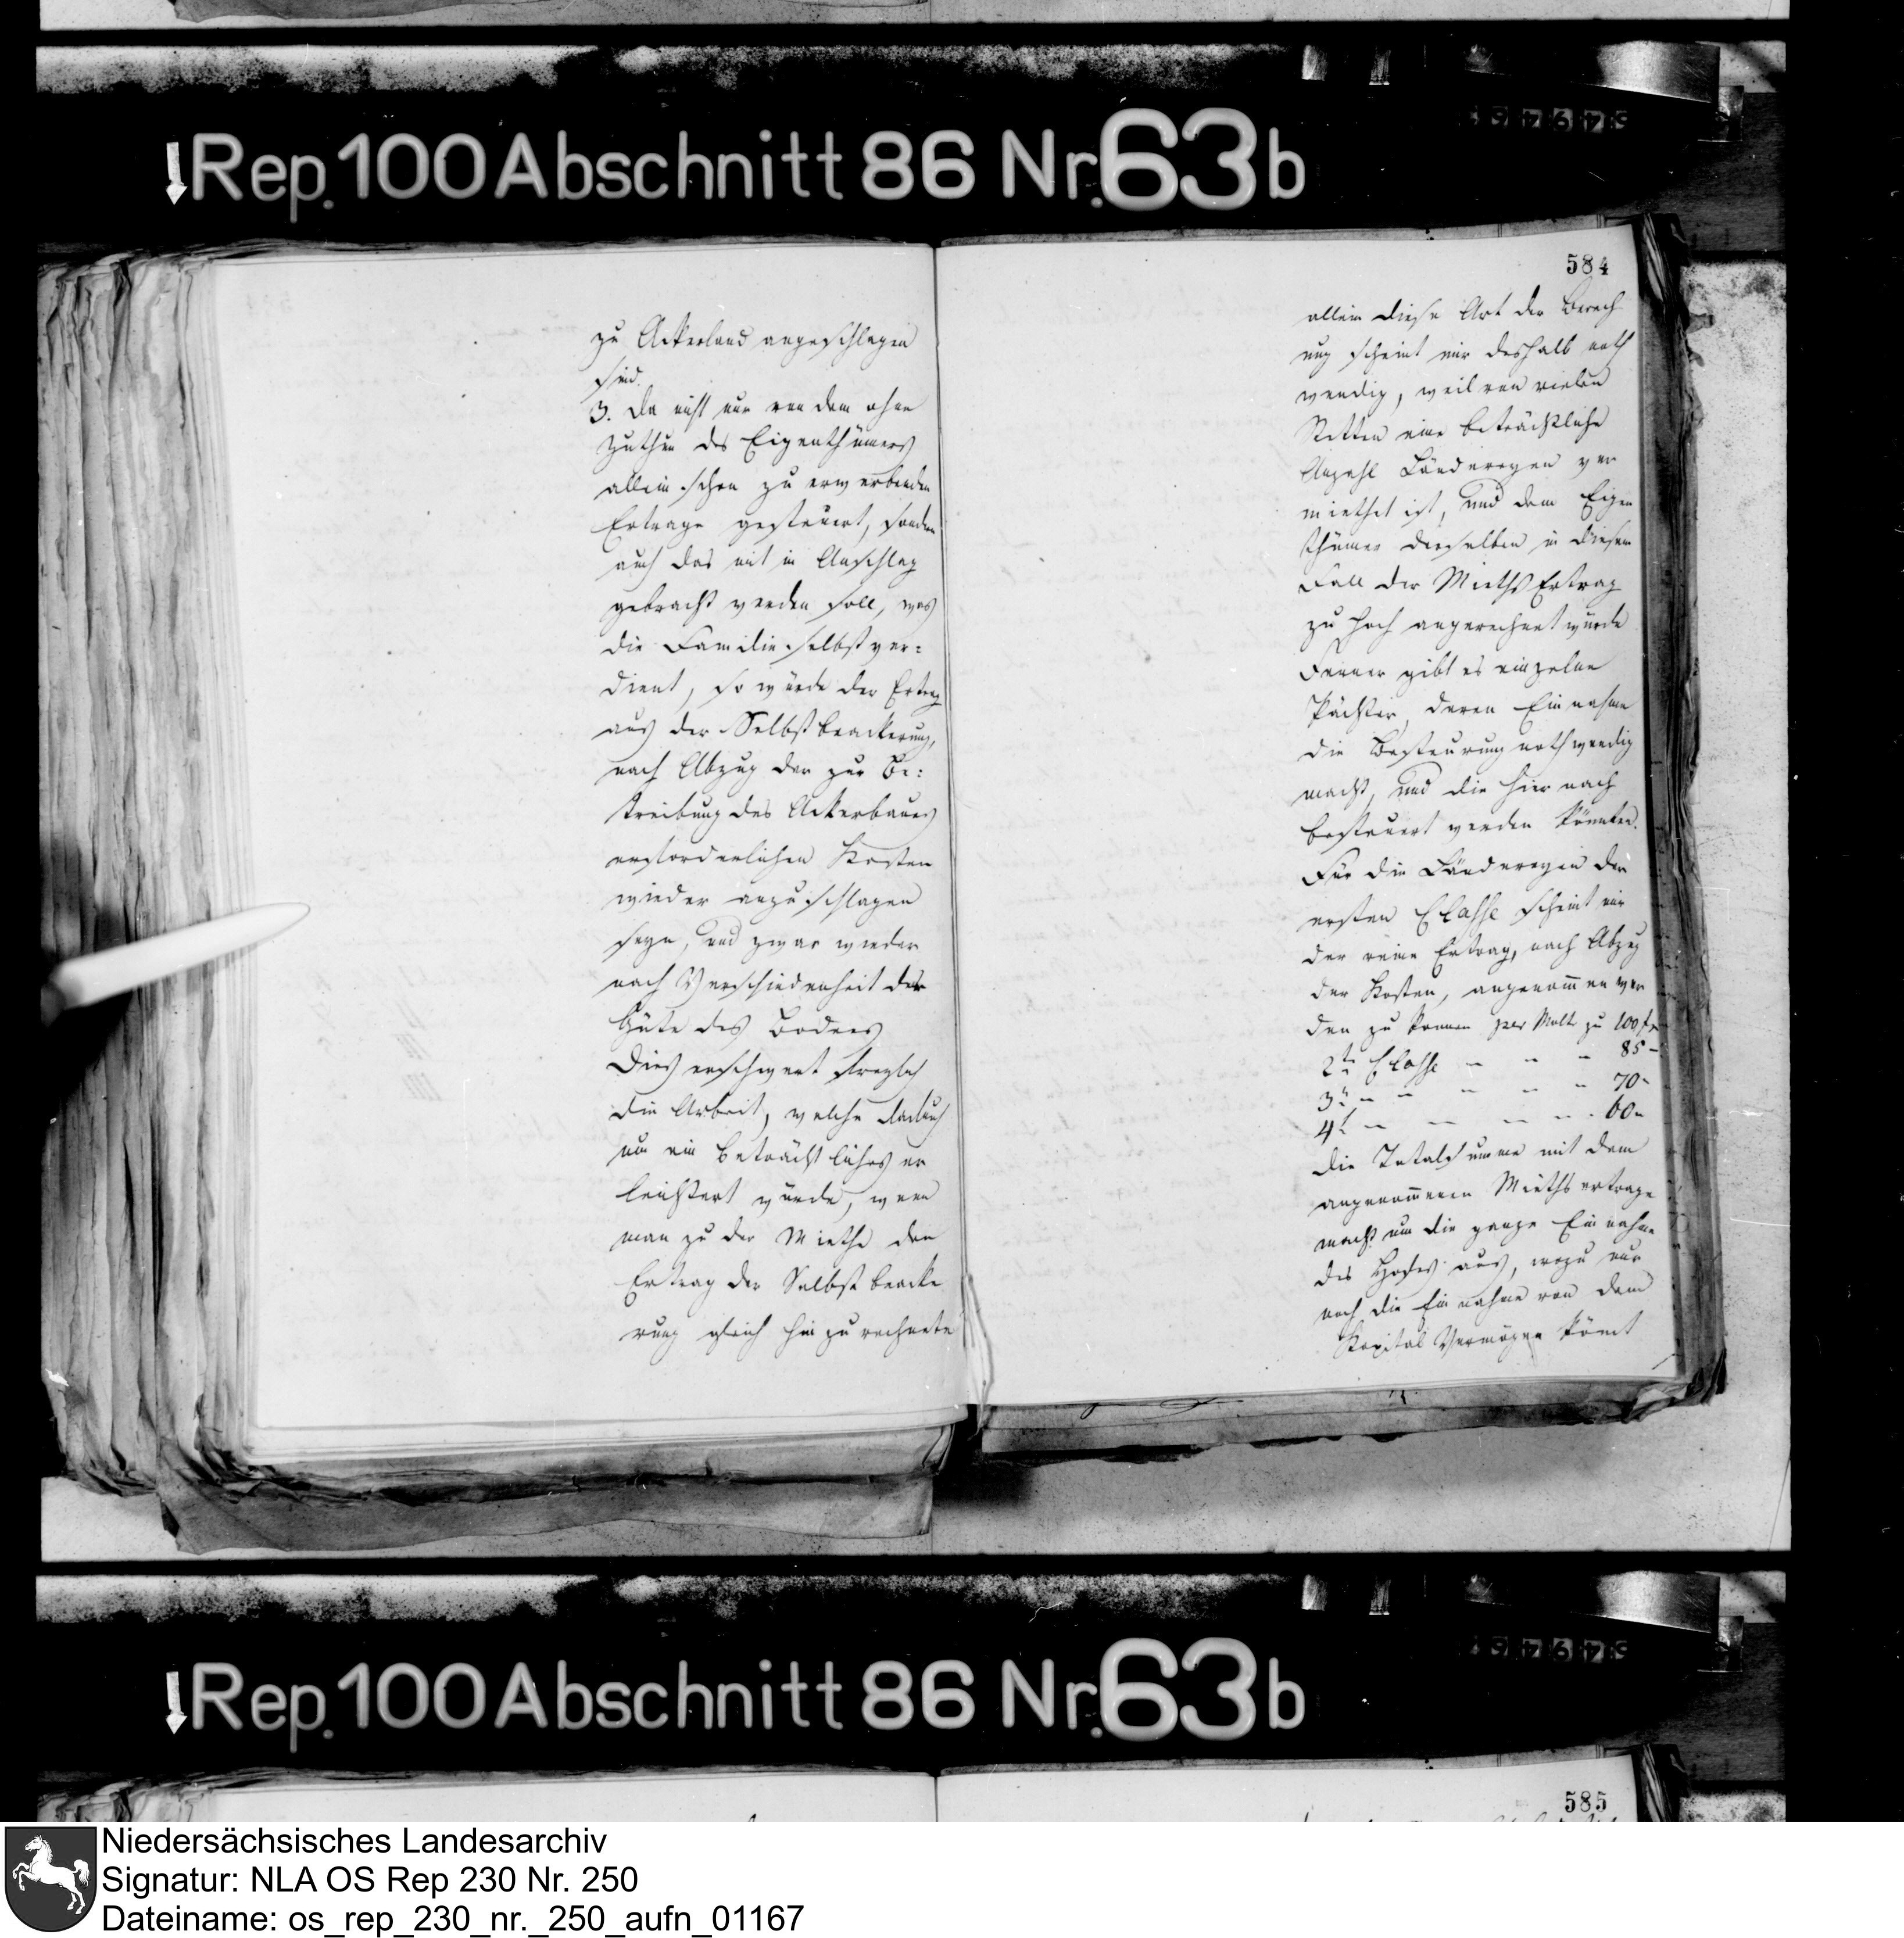 Rep. 100 Abschnitt 86 Nr. 63 b
zu Ackerland angeschlagen
sind.
3. Da nicht nur von dem ohne
Zuthun des Eigenthümers
allein schon zu erwerbenden
Ertrage gesteuert, sondern
auch das mit in Anschlag
gebracht werden soll, was
die Familie selbst ver=
dient, so würde der Ertrag
aus der Selbstbeackerung,
nach Abzug der zur Be=
treibung des Ackerbaues
erforderlichen Kosten
wieder anzuschlagen
seyn, und zwar wieder
nach Verschiedenheit der
Güte des Bodens
Dies erschwert freylich
die Arbeit, welche dadurch
um ein beträchtliches er
leichtert würde, wenn
man zu der Miethe den
Ertrag der Selbstbeacke
rung gleich hinzurechnete
584
allein diese Art der Berech
nung scheint mir deshalb noth
wendig, weil von vielen
Stetten eine beträchtliche
Anzahl Ländereyen ver
miethet ist, und dem Eigen
thümer derselben in diesem
Fall der Mieths Ertrag
zu hoch angerechnet würde
Ferner gibt es einzelne
Pächter, deren Einnahme
die Besteurung nothwendig
macht, und die hier nach
besteuert werden könnten.
Für die Ländereyen der
ersten Classe scheint mir
der reine Ertrag, nach Abzug
der Kosten, angenommen wer
den zu können per Malt. zu 100 f
2te Classe - - - 85 -
3te - - - - - 70 -
4te - - - - - 60 -
die Totalsumme mit dem
angenommenen Miethsertrage
macht nun die ganze Einnahme
des Hofes aus, wozu nur
noch die Einnahme von dem
Kapital Vermögen kömt
Rep. 100 Abschnitt 86 Nr. 63 b
585
Niedersächsisches Landesarchiv
Signatur: NLA OS Rep 230 Nr. 250
Dateiname: os_rep_230_nr._250_aufn_01167